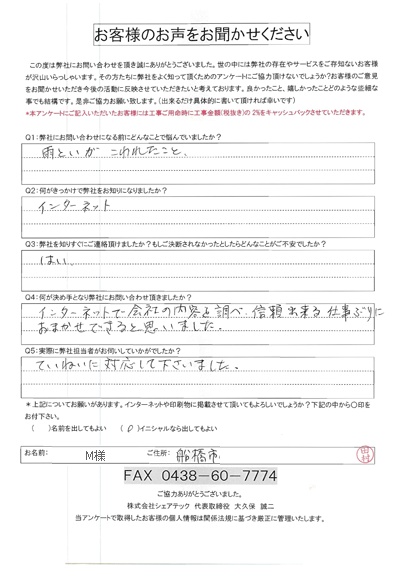 お客様のお声をお聞かせください
この度は弊社にお問い合わせを頂き誠にありがとうございました。世の中には弊社の存在やサービスをご存知ないお客様
が沢山いらっしゃいます。その方たちに弊社をよく知って頂くためのアンケートにご協力頂けないでしょうか？お客様のご意見
をお聞かせいただき今後の活動に反映させていただきたいと考えております。良かったこと、嬉しかったことどのような些細な
事でも結構です。是非ご協力お願い致します。（出来るだけ具体的に書いて頂ければ幸いです）
*本アンケートにご記入いただいたお客様には工事ご用命時に工事金額(税抜き)の2%をキャッシュバックさせていただきます。
Q1：弊社にお問い合わせになる前にどんなことで悩んでいましたか？
雨といが こわれたこと、
Q2：何がきっかけで弊社をお知りになりましたか？
インターネット
Q3：弊社を知りすぐにご連絡頂けましたか？もしご決断されなかったとしたらどんなことがご不安でしたか？
はい。
Q4：何が決め手となり弊社にお問い合わせ頂きましたか？
インターネットで会社の内容を調べ、信頼出来る仕事ぶりに
おまかせできると思いました。
Q5：実際に弊社担当者がお伺いしていかがでしたか？
ていねいに対応して下さいました。
*上記についてお願いがあります。インターネットや印刷物に掲載させて頂いてもよろしいでしょうか？下記の中から〇印を
お付下さい。
（ ）名前を出してもよい （〇）イニシャルなら出してもよい
お名前： M様 ご住所： 船橋市 田村
FAX 0438-60-7774
ご協力ありがとうございました。
株式会社シェアテック 代表取締役 大久保 誠二
当アンケートで取得したお客様の個人情報は関係法規に基づき厳正に管理いたします。